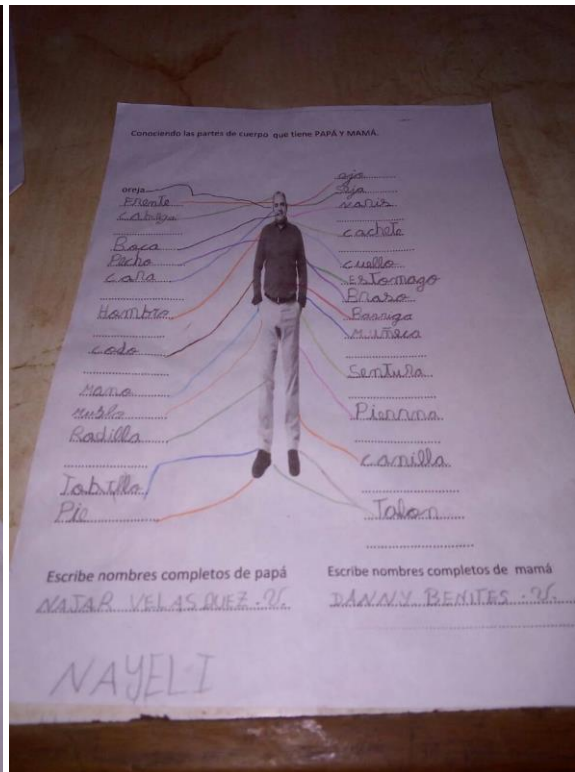 Conociendo las partes de cuerpo que tiene PAPÁ Y MAMÁ.
oreja
Frente
Cabeza
Boca
Pecho
Cara
Hombro
codo
Mano
Muslo
Radilla
Tobillo
Pie
ojo
Sija
Naris
cachete
cuello
EsTomago
Braso
Barriga
Muñeca
SenTura
Piernna
canilla
Talon
Escribe nombres completos de papá
NAJAR VELASQUEZ . V.
Escribe nombres completos de mamá
DANNY BENITES . V.
NAYELI